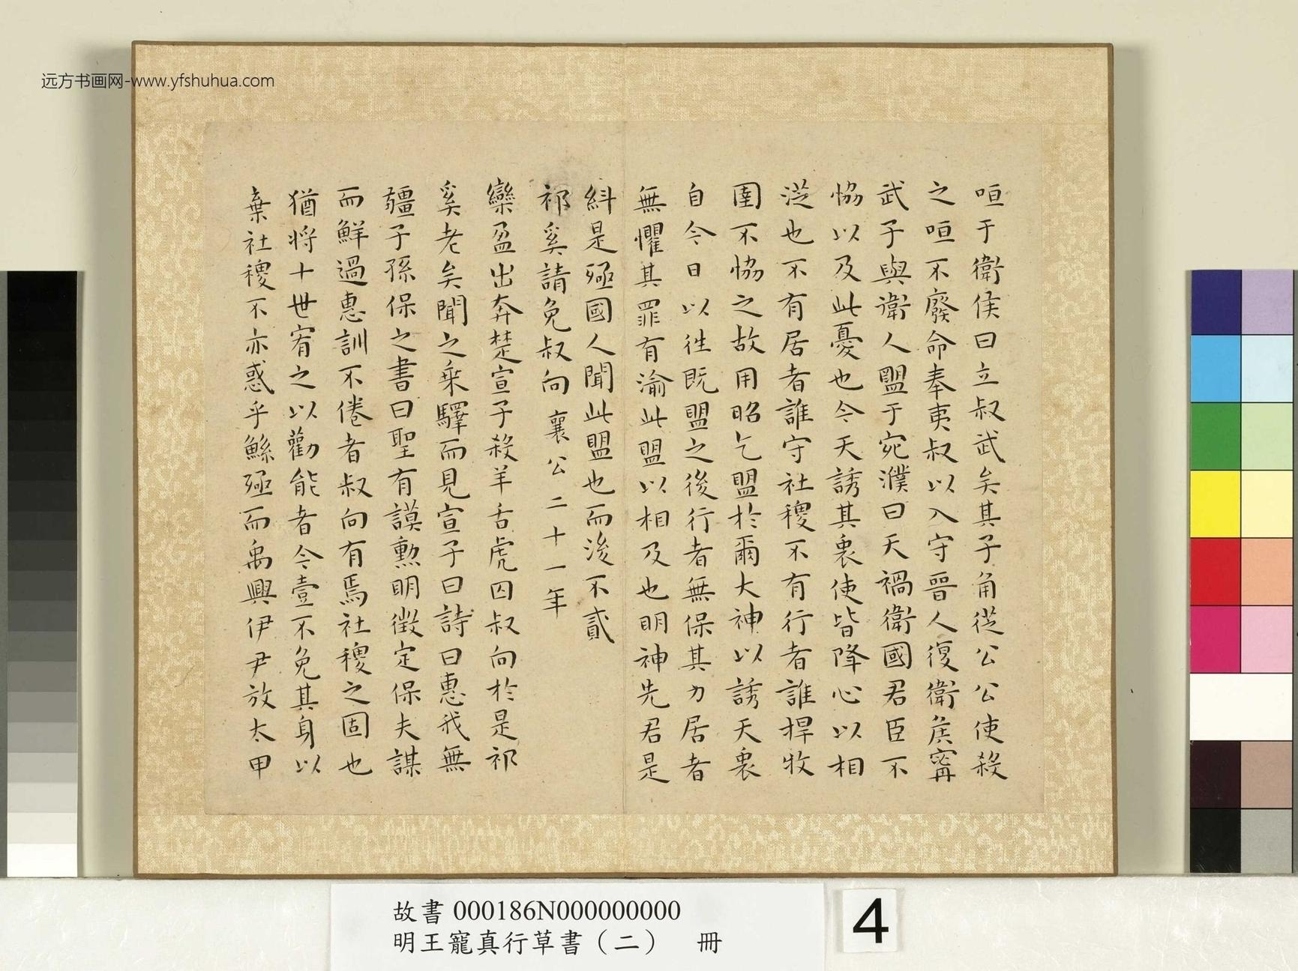 远方书画网-www.yfshuhua.com
咺于衛侯曰立叔武矣其子角從公公使殺
之咺不廢命奉夷叔以入守晉人復衛侯甯
武子與衛人盟于宛濮曰天禍衛國君臣不
恊以及此憂也今天誘其衷使皆降心以相
從也不有居者誰守社稷不有行者誰捍牧
圉不恊之故用昭乞盟於爾大神以誘天衷
自今日以往既盟之後行者無保其力居者
無懼其罪有渝此盟以相及也明神先君是
糾是殛國人聞此盟也而後不貳
祁奚請免叔向 襄公二十一年
欒盈出奔楚宣子殺羊舌虎囚叔向於是祁
奚老矣聞之乘驛而見宣子曰詩曰惠我無
疆子孫保之書曰聖有謨勲明徵定保夫謀
而鮮過惠訓不倦者叔向有焉社稷之固也
猶將十世宥之以勸能者今壹不免其身以
棄社稷不亦惑乎鯀殛而禹興伊尹放太甲
故書 000186N000000000
明王寵真行草書（二） 冊
4